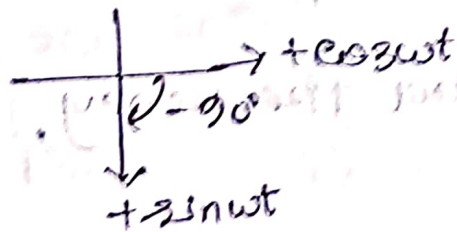 +cosωt
-90°
+sinωt